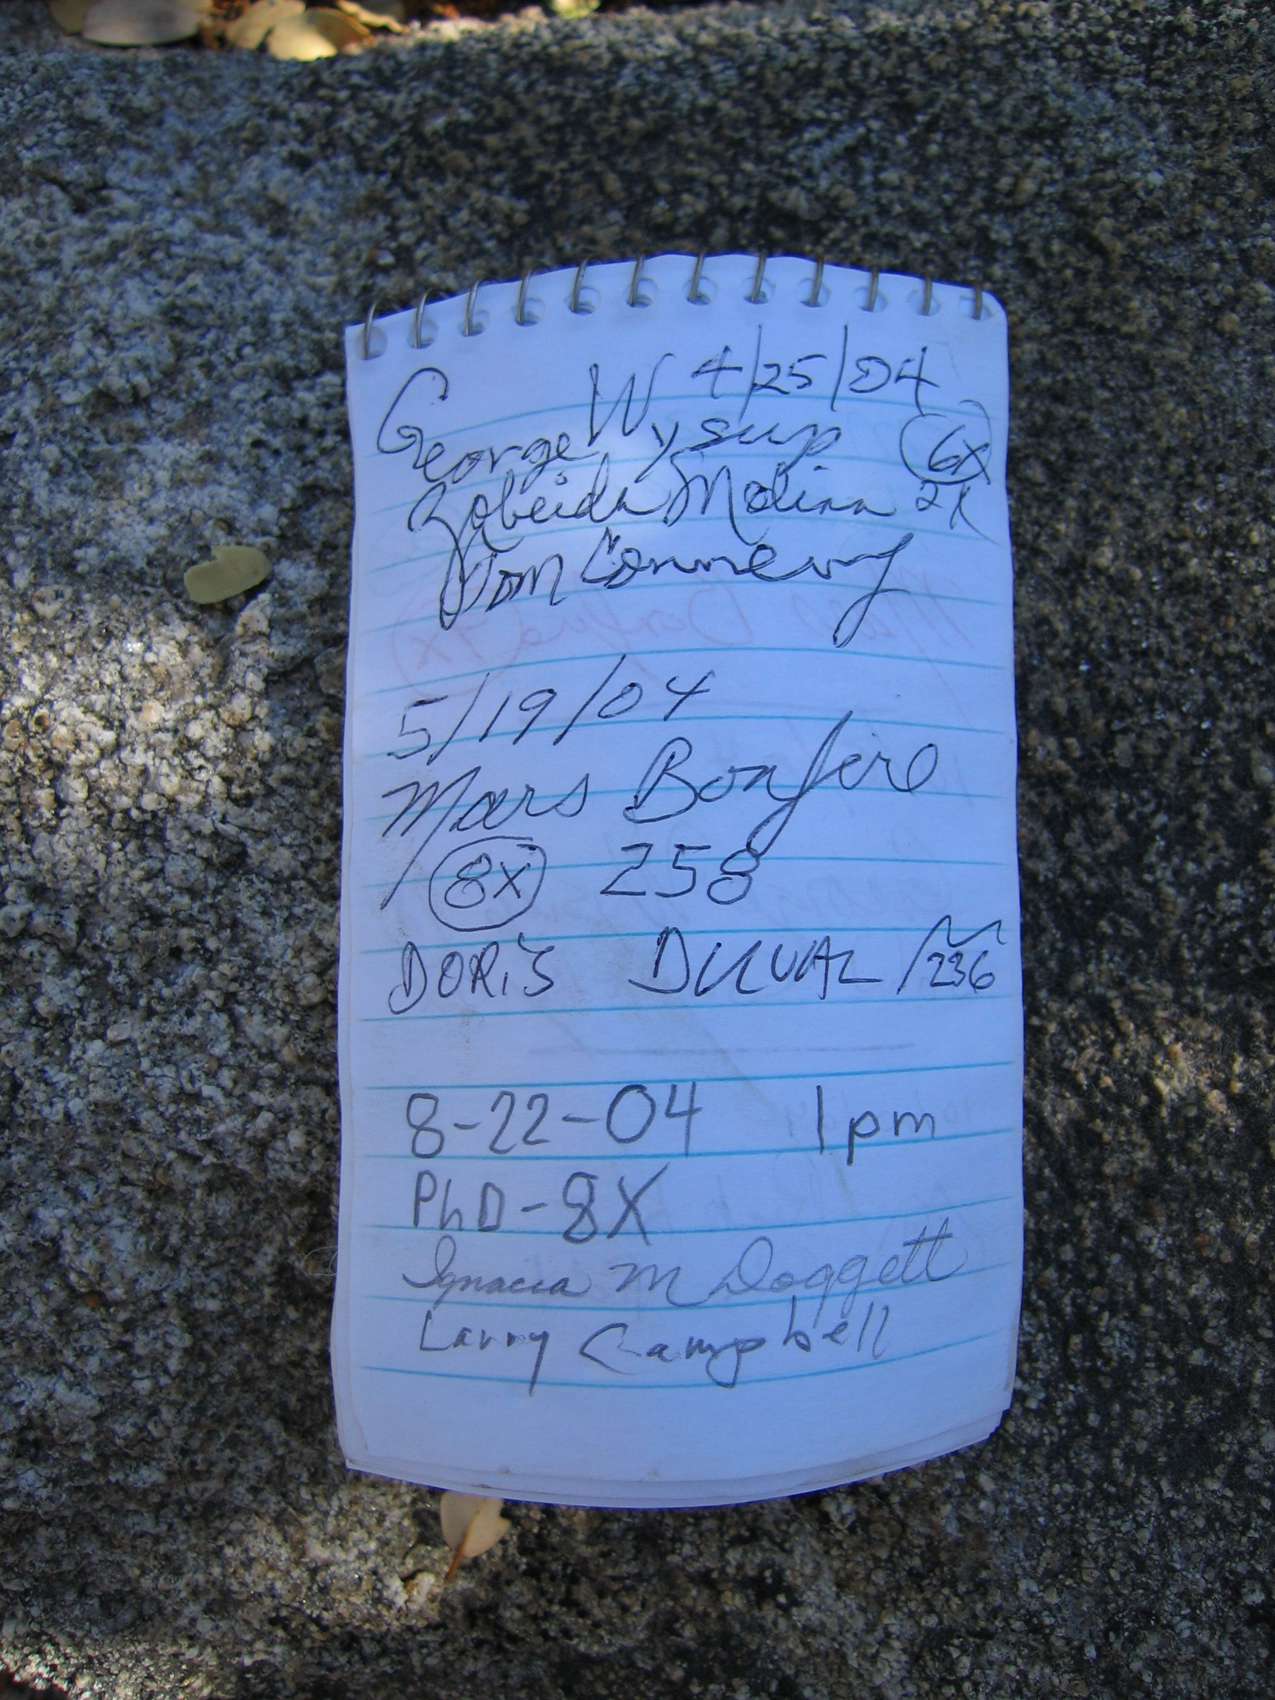 4/25/04
George Wysup (6X)
Zobeida Molina 2X
Tom Connery
5/19/04
Mars Bonfire
8X 258
DORiS DUVAL /236
8-22-04 1pm
PhD-8X
Ignacia M Doggett
Larry Campbell